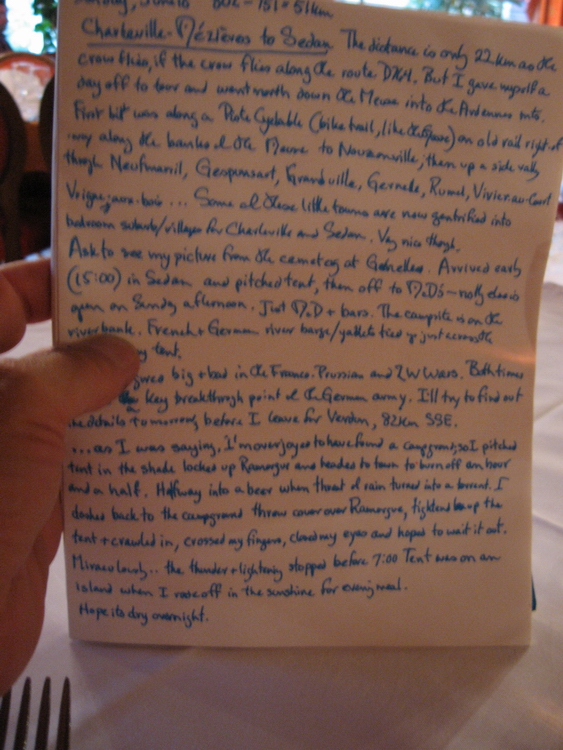 802-751=51km
Charleville-Mézières to Sedan The distance is only 22 km as the
crow flies, if the crow flies along the route D764. But I gave myself a
day off to tour and went north down the Meuse into the Ardennes mts.
First bit was along a Piste Cyclable (bike trail, like the) on old rail right of
way along the banks of the Meuse to Nouzonville, then up a side vally
through Neufmanil, Gespunsart, Grandville, Gernelle, Rumel, Vivier-au-Court
Vrigne-aux-bois ... Some of these little towns are now gentrified into
bedroom suburbs/villages for Charleville and Sedan. Very nice though.
Ask to see my picture from the cemetary at Gernelle. Arrived early
(15:00) in Sedan and pitched tent, then off to McD's - nothing else is
open on Sunday afternoon. Just McD + bars. The campsite is on the
riverbank. French + German river barge/yachts tied up just across the
my tent.
big + bad in the Franco-Prussian and 2 W Wars. Both times
key breakthrough point of the German army. I'll try to find out
the details tomorrow, before I leave for Verdun, 82km SSE.
...as I was saying, I'm overjoyed to have found a campground, so I pitched
tent in the shade locked up Ramogue and headed to town to burn off an hour
and a half. Halfway into a beer when threat of rain turned into a torrent. I
dashed back to the campground threw cover over Ramogue, tightened up the
tent + crawled in, crossed my fingers, closed my eyes and hoped to wait it out.
Miraculously.. the thunder + lightning stopped before 7:00 Tent was on an
island when I rode off in the sunshine for evening meal.
Hope its dry overnight.